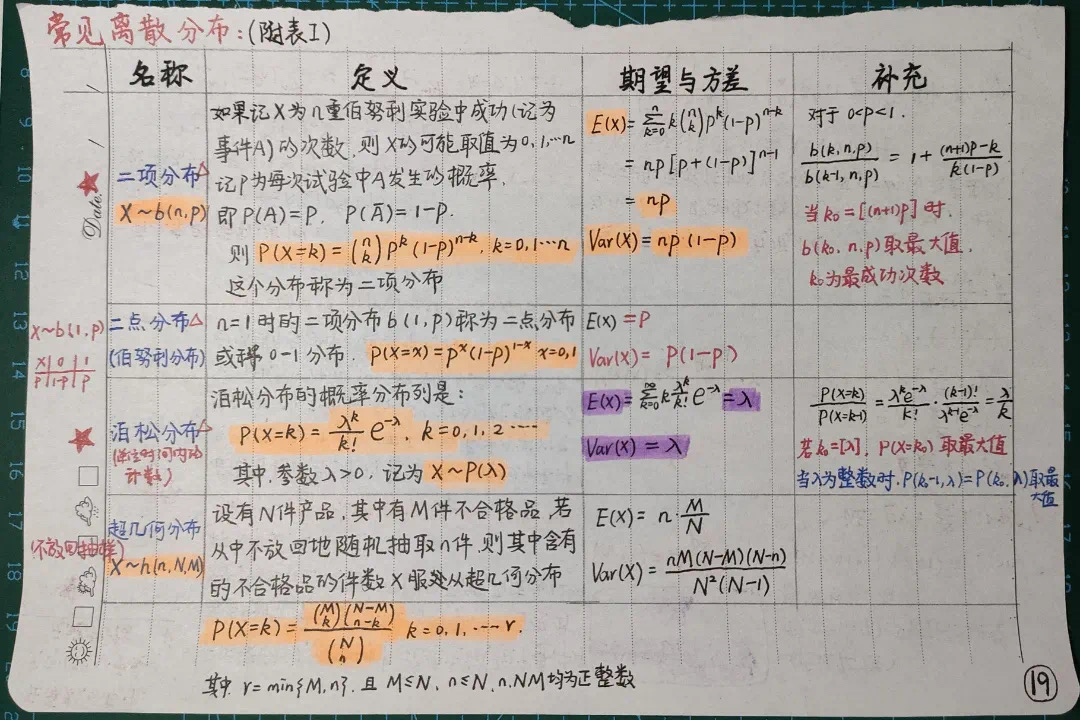 常见离散分布:(附表I)
名称 定义 期望与方差 补充
Date
二项分布△
X~b(n,p)
如果记X为n重伯努利实验中成功(记为
事件A)的次数,则X的可能取值为0,1,…n
记p为每次试验中A发生的概率.
即P(A)=P. P(Ā)=1-P.
则 P(X=k)=(n k)p^k(1-p)^{n-k}. k=0,1…n
这个分布称为二项分布
E(X)=∑_{k=0}^{n} k(n k)p^k(1-p)^{n-k}
=np[p+(1-p)]^{n-1}
=np
Var(X)=np(1-p)
对于0<p<1.
b(k,n,p)/b(k-1,n,p)=1+((n+1)p-k)/(k(1-p))
当k₀=[(n+1)p]时.
b(k₀,n,p)取最大值.
k₀为最成功次数
X~b(1,p)
X 0 1
P 1-p p
二点分布△
(伯努利分布)
n=1时的二项分布b(1,p)称为二点分布
或称0-1分布. P(X=x)=p^x(1-p)^{1-x} x=0,1
E(X)=P
Var(X)=P(1-P)
泊松分布△
(单位时间内的
计数)
泊松分布的概率分布列是:
P(X=k)=λ^k/k! e^{-λ}. k=0,1,2……
其中,参数λ>0,记为X~P(λ)
E(X)=∑_{k=0}^{∞} k λ^k/k! e^{-λ}=λ
Var(X)=λ
P(X=k)/P(X=k-1)=λ^k e^{-λ}/k!·(k-1)!/λ^{k-1}e^{-λ}=λ/k
若k₀=[λ],P(X=k₀)取最大值
当λ为整数时.P(k₀-1,λ)=P(k₀,λ)取最
大值
超几何分布
(不放回抽样)
X~h(n,N,M)
设有N件产品,其中有M件不合格品,若
从中不放回地随机抽取n件,则其中含有
的不合格品的件数X服从超几何分布
P(X=k)=(M k)(N-M n-k)/(N n) k=0,1,…r.
其中 r=min{M,n},且M≤N,n≤N,n,N,M均为正整数
E(X)=n·M/N
Var(X)=nM(N-M)(N-n)/N²(N-1)
19
8
9
10
11
12
13
14
15
16
17
18
19